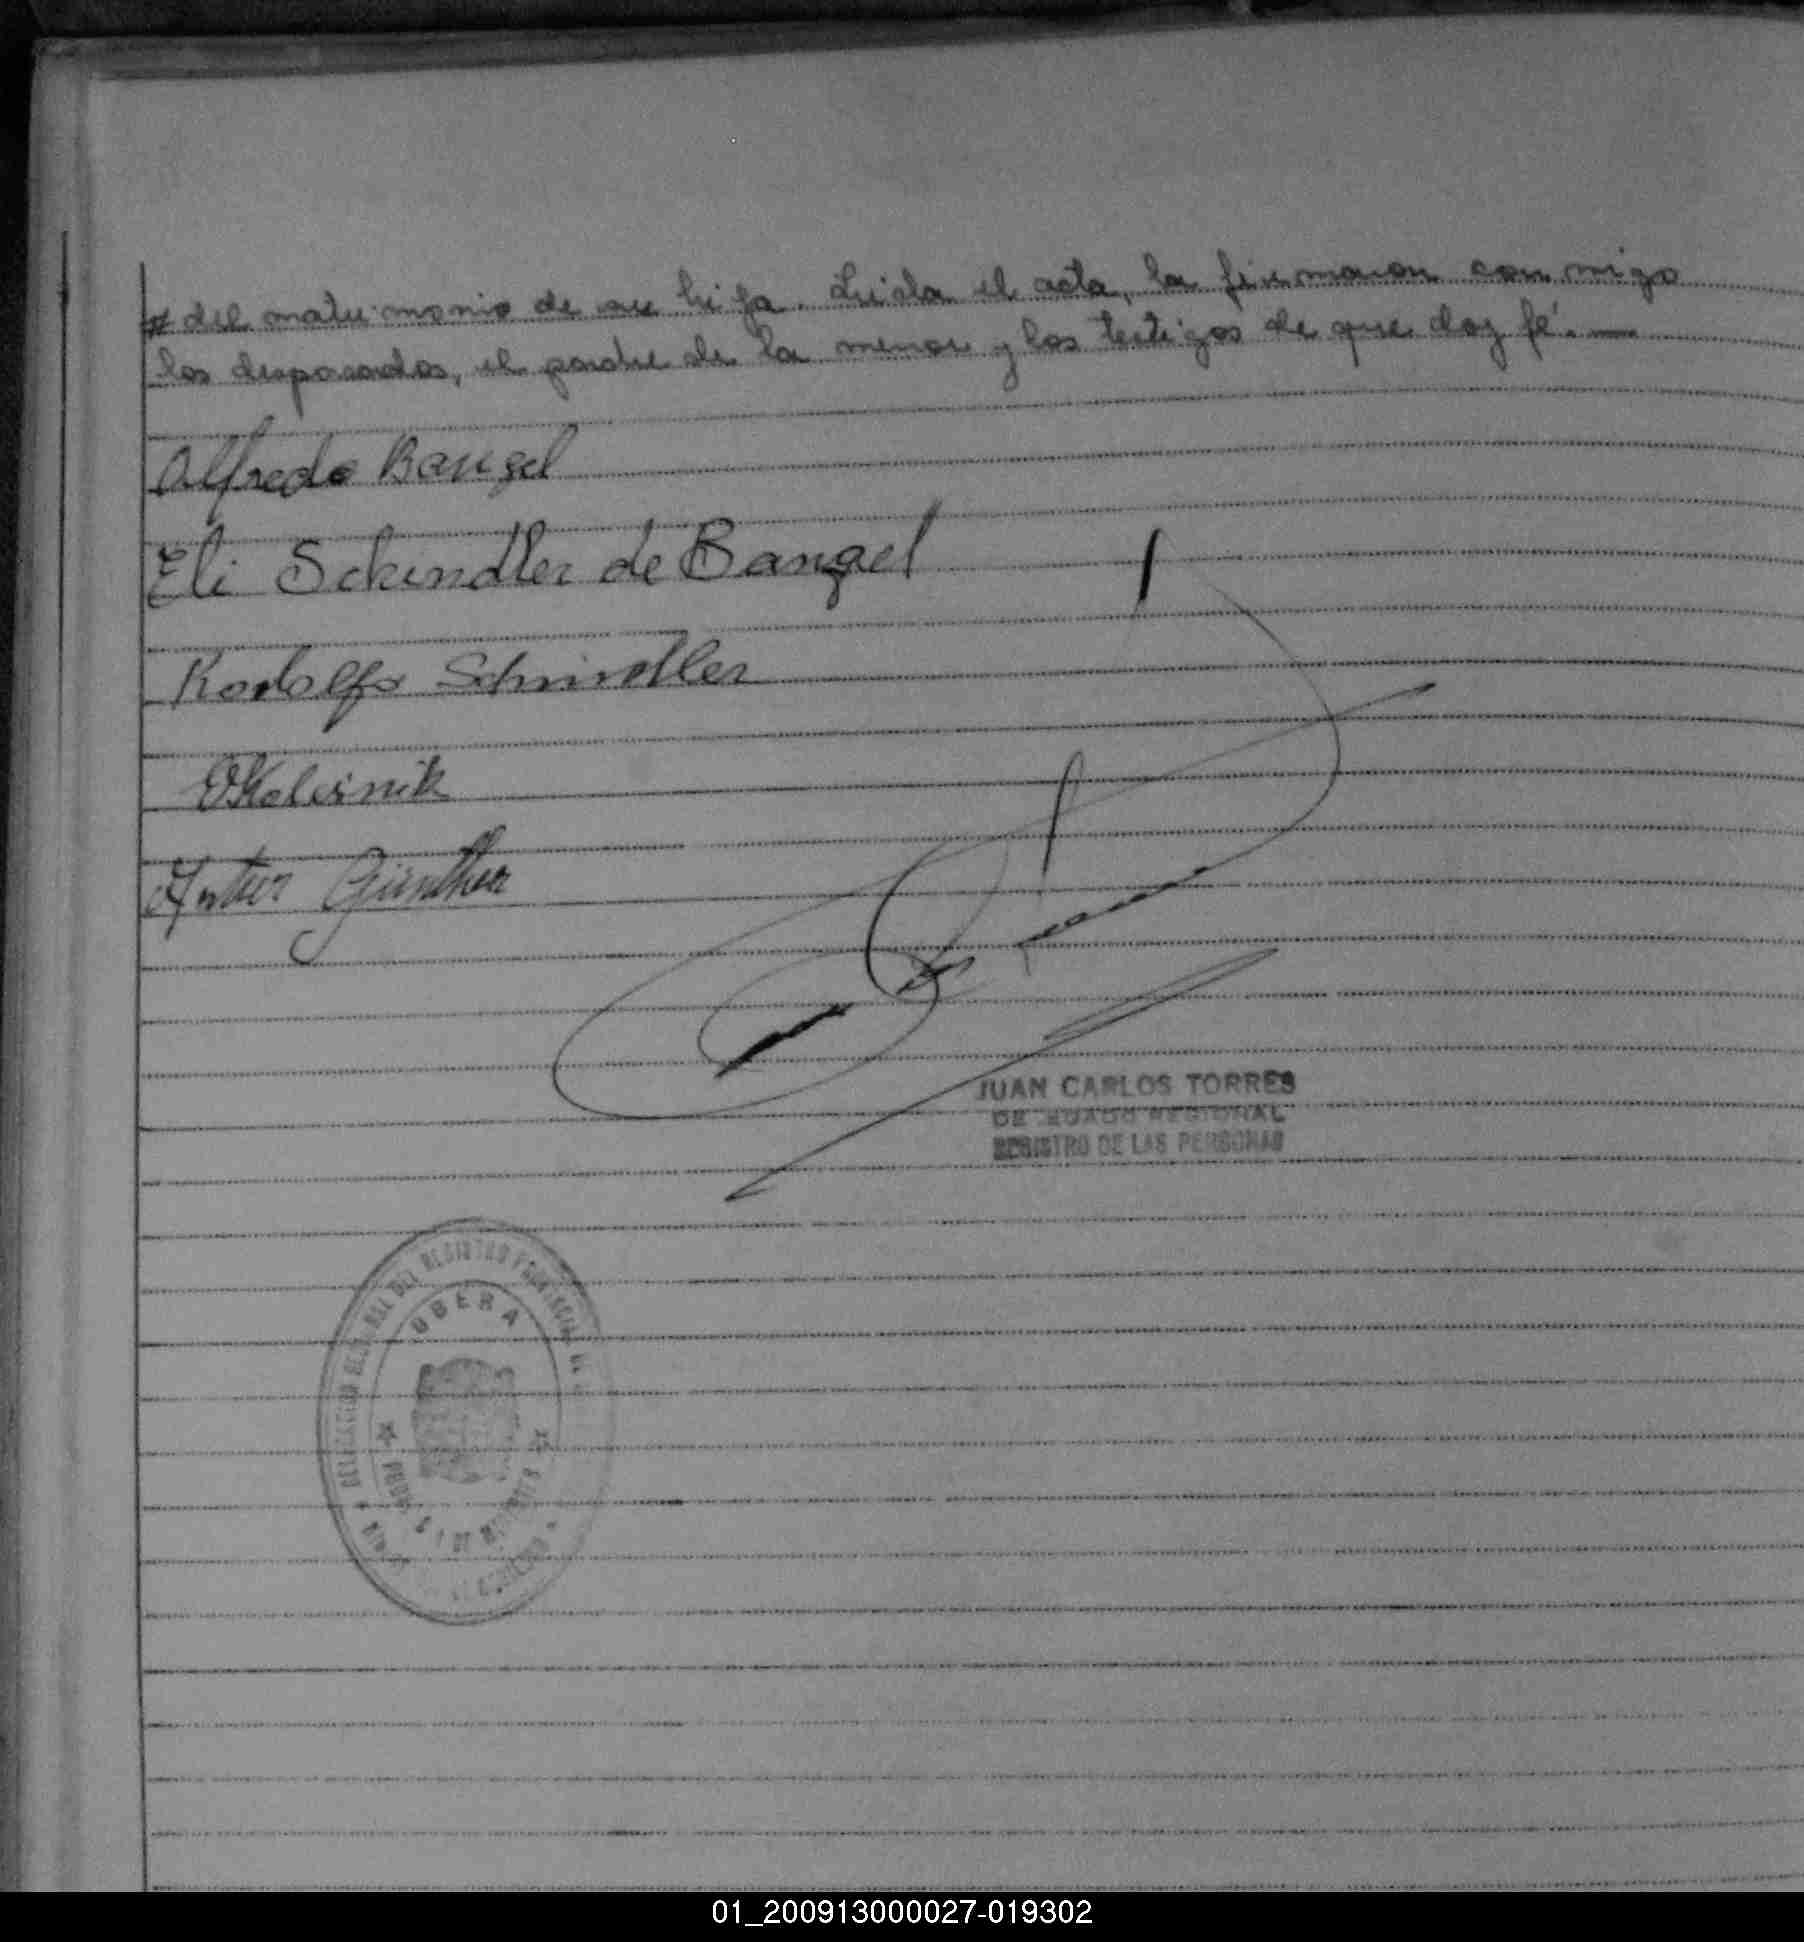 # del matrimonio de su hija. Leída el acta, la firmaron conmigo
los desposados, el padre de la menor y los testigos de que doy fé.—
Alfredo Bangel
Eli Schindler de Bangel
Rodolfo Schindler
Kolesnik
Günther
JUAN CARLOS TORRES
REGIONAL
REGISTRO DE LAS PERSONAS
DELEGACION REGIONAL DEL REGISTRO PROVINCIAL DE
OBERA
01_200913000027-019302